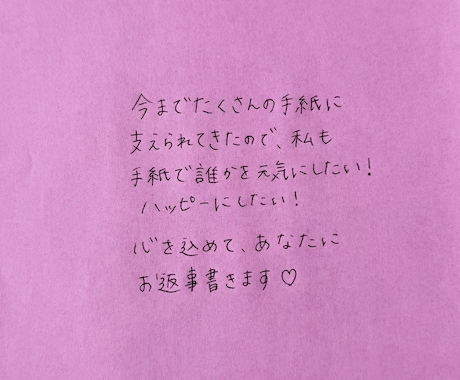 今までたくさんの手紙に
支えられてきたので、私も
手紙で誰かを元気にしたい！
ハッピーにしたい！
心を込めて、あなたに
お返事書きます♡